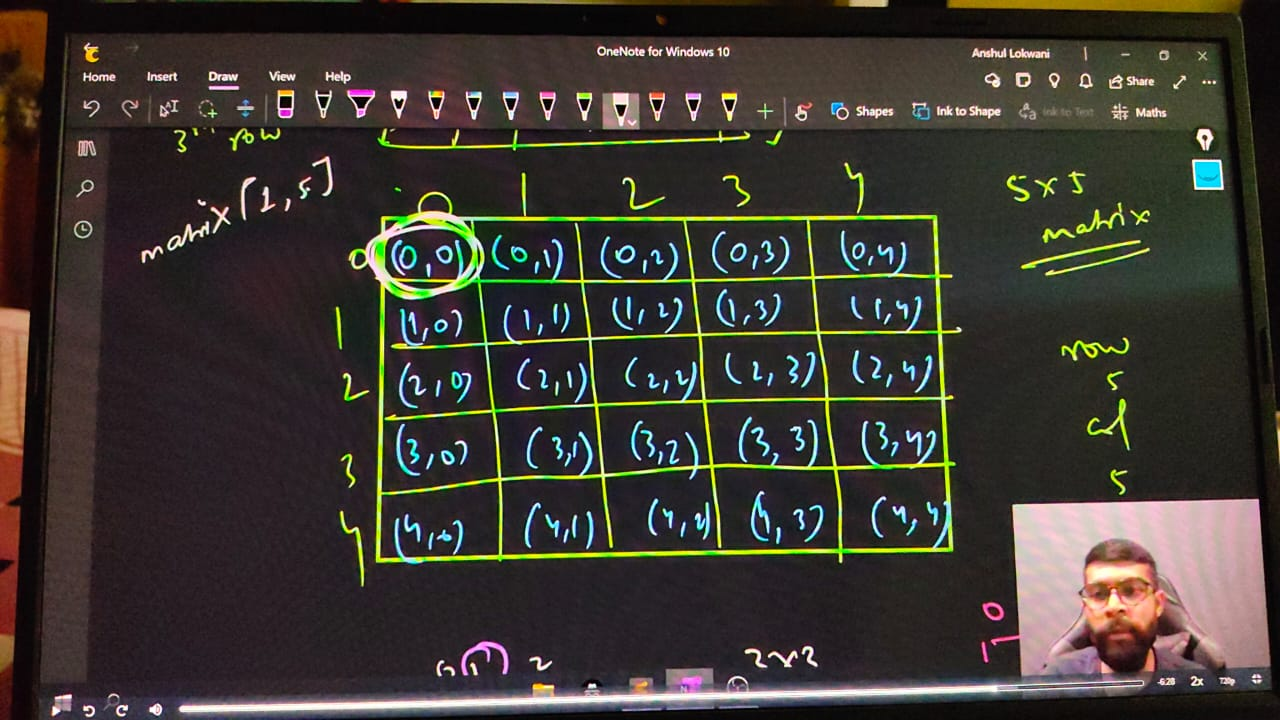 OneNote for Windows 10
Anshul Lokwani
Home Insert Draw View Help
Share
Shapes Ink to Shape Ink to Text Maths
3rd row
matrix[1,5]
0 1 2 3 4
5x5
matrix
0 (0,0) (0,1) (0,2) (0,3) (0,4)
1 (1,0) (1,1) (1,2) (1,3) (1,4)
2 (2,0) (2,1) (2,2) (2,3) (2,4)
3 (3,0) (3,1) (3,2) (3,3) (3,4)
4 (4,0) (4,1) (4,2) (4,3) (4,4)
row
5
col
5
0
1
2
2x2
-6:28 2x 720p